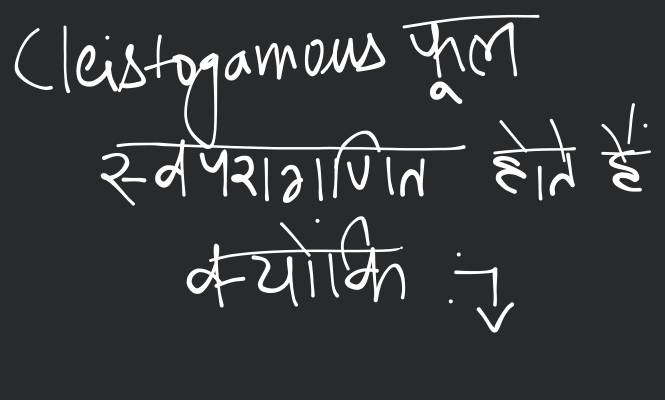 Cleistogamous फूल
स्वपरागणित होते हैं
क्योंकि :-